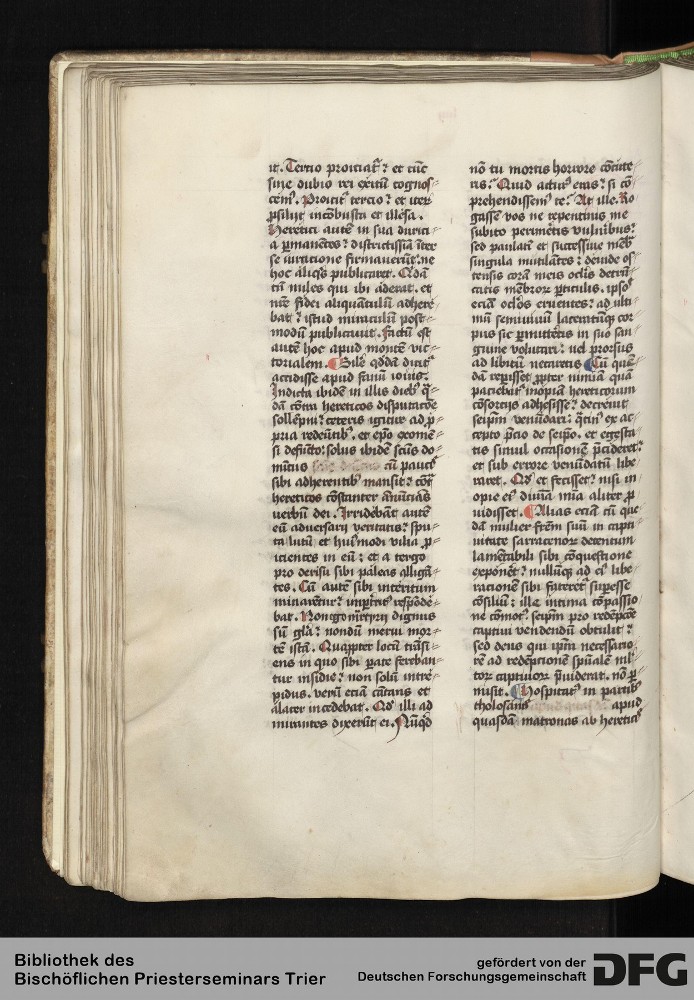 it. Tertio proiciat᷑ ⁊ et tūc
sine dubio rei exitū cognos-
cem᷒. Proicit᷑ tercio ⁊ et iteꝝ
ꝓsiliit incōbusta et illesa.
Heretici autē in sua durici-
a ꝑmanētes ⁊ districtissīa īter
se iuratione firmauerūt ne
hoc aliq᷒s publicaret. Qdā
tn̄ miles qui ibi aderat. et
nr̄e fidei aliquātulū adhere-
bat ⁊ istud miraculū post-
modū publicauit. Factū est
autē hoc apud montē vic-
torialem. ¶ Sile qddā dicit᷑
accidisse apud fanū iouis.
Indicta ibidē in illis dieb᷒ q̄-
dā cōtra hereticos disputacōe
sollēpni ⁊ ceteris igitur ad ꝓ-
pria redeūtib᷒. et ep̄o oxomē-
si defūcto. solus ibidē scūs do-
micus cū pauc᷒
sibi adherentib᷒ mansit ⁊ cōt᷑
hereticos cōstanter ānūciās
uerbū dei. Irridebāt autē
eū aduersarij veritatis ⁊ spu-
ta lutū et hui᷒modi vilia ꝓ-
icientes in eū ⁊ et a tergo
pro derisu sibi paleas alligā-
tes. Cū autē sibi interitum
minarētur ⁊ impt̄rit᷒ respōde-
bat. Non ego martyrij dignus
sū gl̄a ⁊ nondū merui mor-
tē istā. Quapꝓter locū trāsi-
ens in quo sibi ꝑate fereban-
tur insidie ⁊ non solū intre-
pidus. verū eciā cātans et
alacer incedebat. Qd̓ illi ad-
mirantes dixerūt ei. Nūqd̓
nō tu mortis horrore cōcute-
ris. Quid actur᷒ eras ⁊ si cō-
prehendissem᷒ te. At ille. Ro-
gassē vos ne repentinis me
subito perimetis vulnib᷒.
sed paulatī et successiue mēb᷑
singula mutilātes ⁊ deinde os-
tensis corā meis oclis detrū-
catis mēbroꝝ ꝑticulis. ipsos
eciā oclos eruentes ⁊ ad ulti-
mū semiuiuū laceratūqꝫ cor-
pus sic ꝑmitteretis in suo san-
guine volutari ⁊ uel prorsus
ad libitū necaretis. ¶ Cū quē-
dā reꝑisset ꝓpter nimiā quā
paciebat᷑ inopiā hereticorum
cōsorcijs adhesisse ⁊ decreuit
seip̄m venūdari ⁊ q̄tin᷒ ex ac-
cepto p̄cio de seip̄o. et egesta-
tis simul occasionē p̄cideret ⁊
et sub errore venūdatū libe-
raret. Qd̓ et fecisset ⁊ nisi in-
opie ei᷒ diuīa mīa aliter ꝓ-
uidisset. ¶ Alias eciā cū que-
dā mulier fr̄em suū in capti-
uitate sarracenoꝝ detentum
lamētabili sibi cōquestione
exponēt ⁊ nullūqꝫ ad ei᷒ libe-
racionē sibi fateret᷑ suꝑesse
cōsiliū ⁊ ille intima cōpassio-
ne cōmot᷒ ⁊ seip̄m pro redēpcōe
captiui vendendū obtulit ⁊
sed deus qui ip̄m necessario-
rē ad redēpcionē sp̄ualē ml̓-
torꝫ captiuoꝝ p̄uiderat. nō ꝑ-
misit. ¶ Hospitat᷒ in partib᷒
tholosanis apud
quasdā matronas ab heretic᷒
Bibliothek des
Bischöflichen Priesterseminars Trier
gefördert von der
Deutschen Forschungsgemeinschaft
DFG